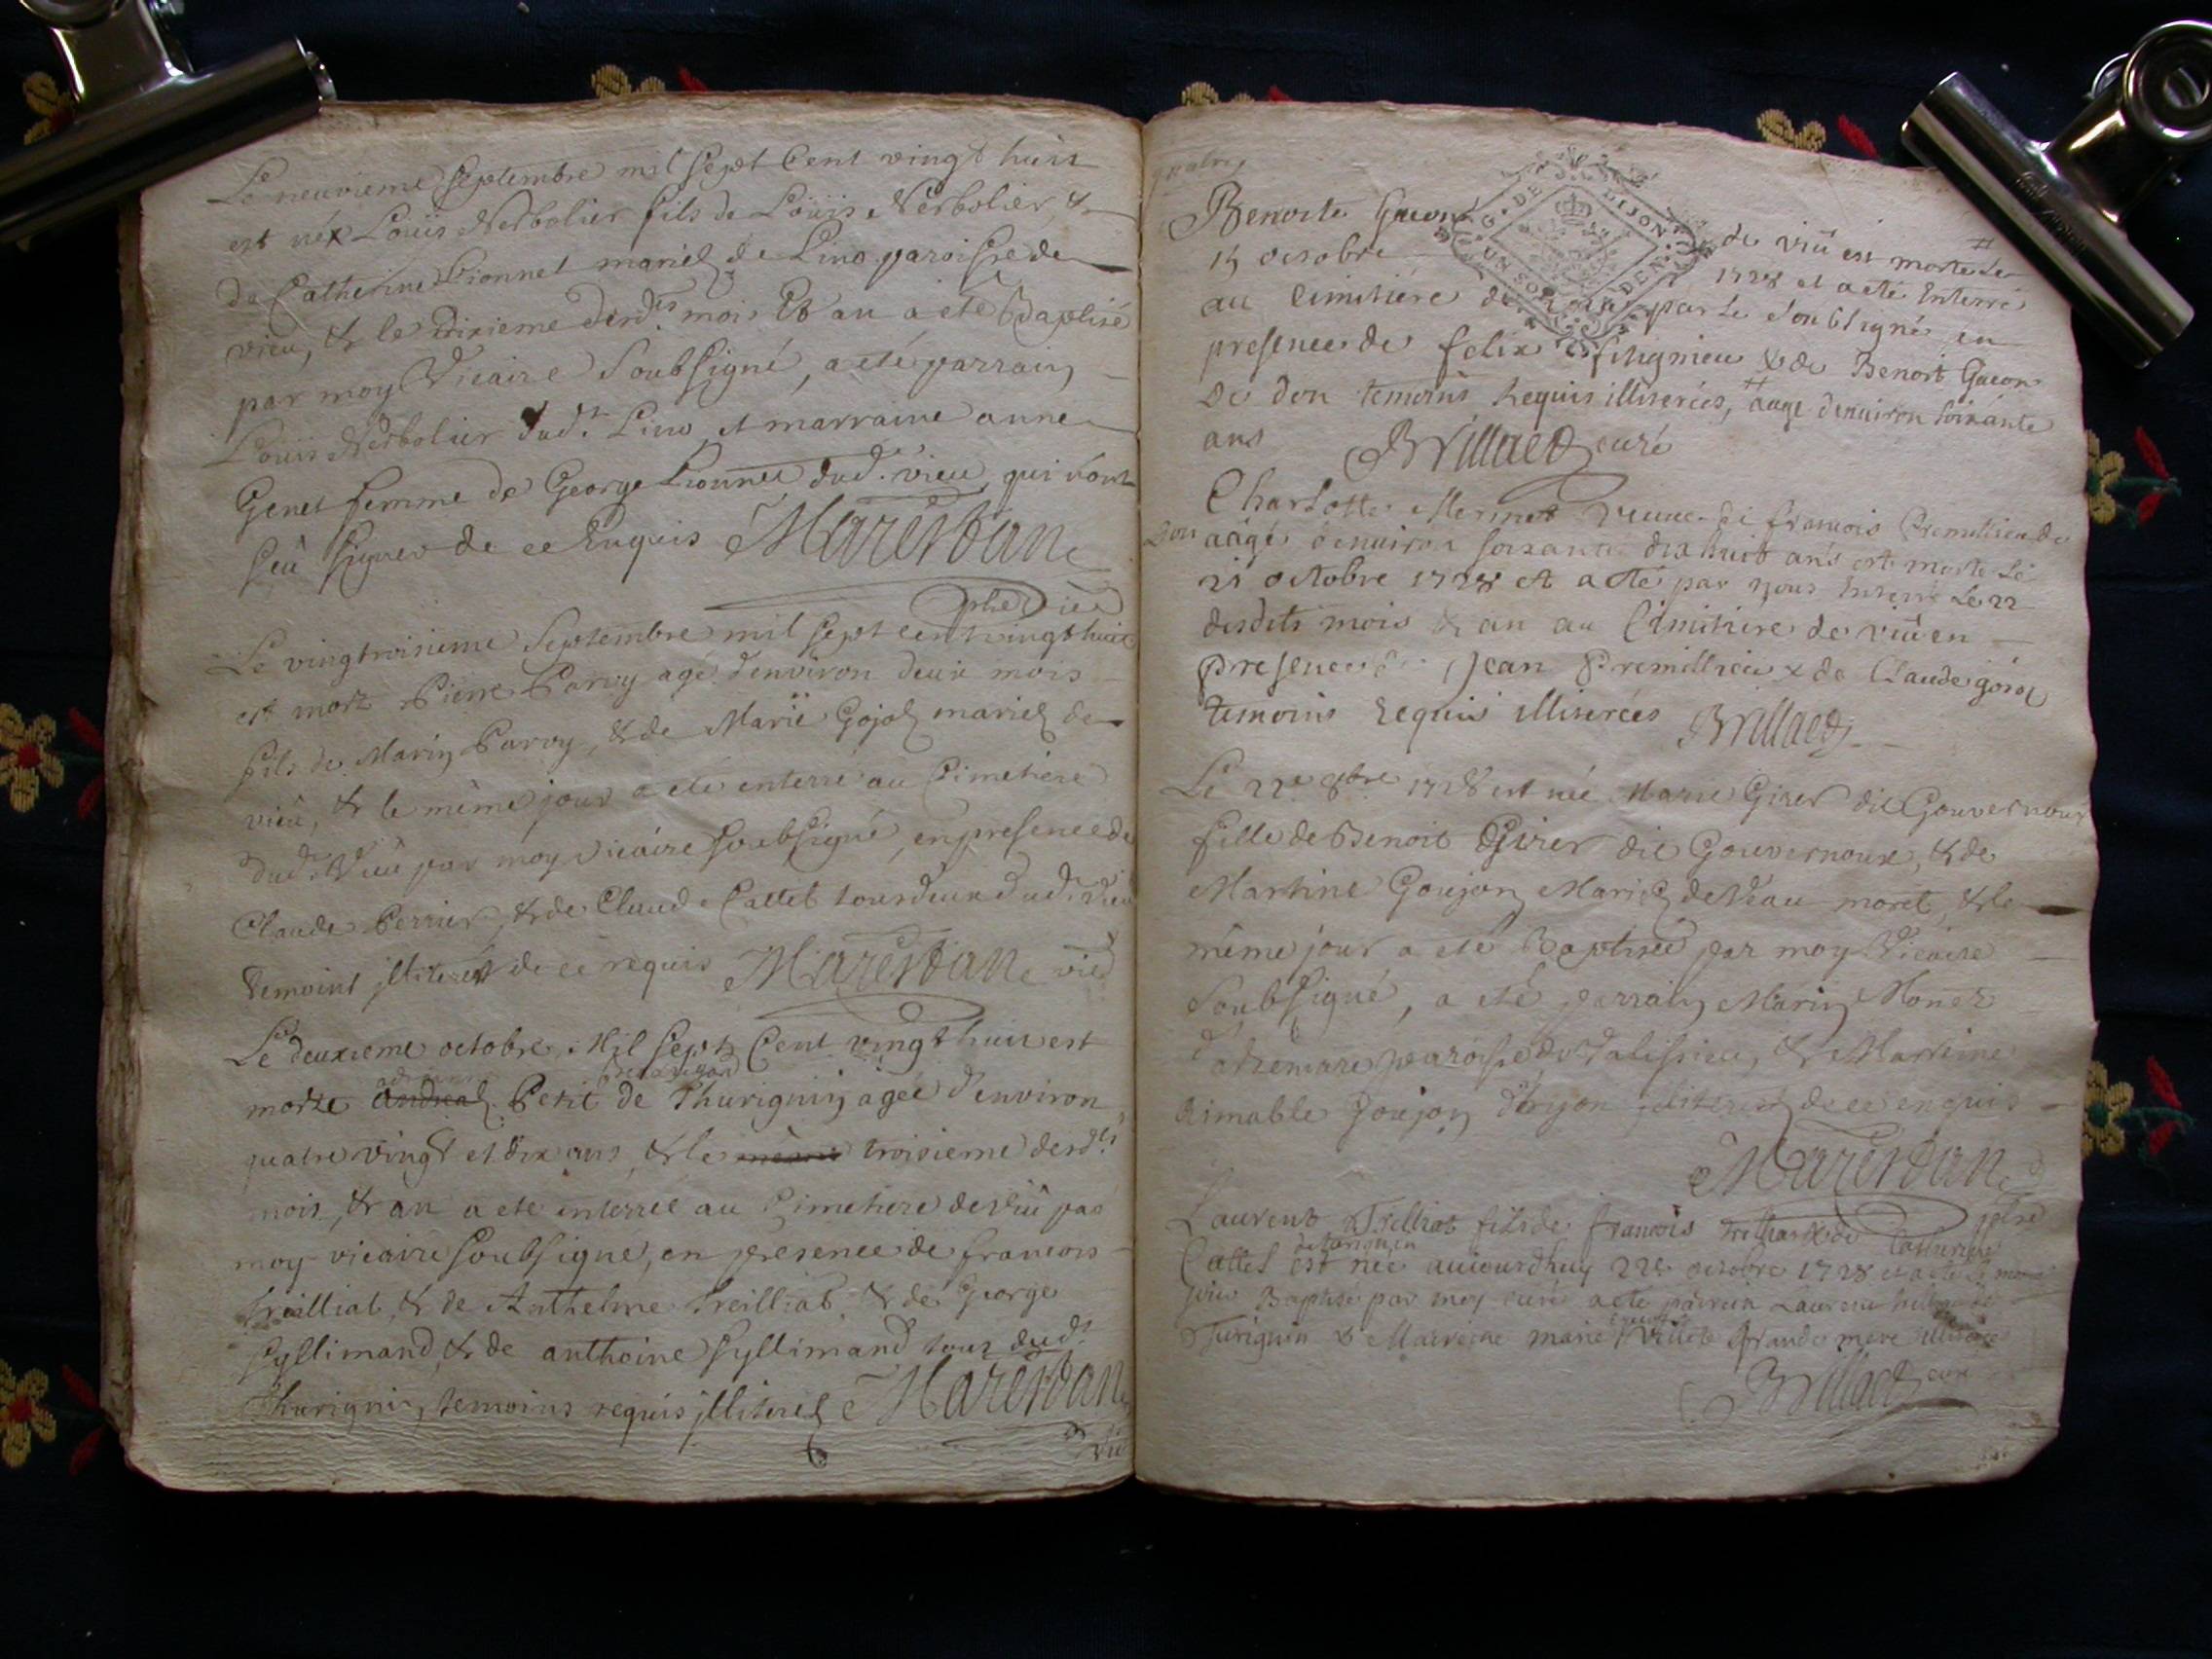 Le neuvieme Septembre mil Sept Cent vingt huit
est néx Loüis Nerbolier fils de Loüis Nerbolier &
de Catherine Pionnet mariez de Lino paroisse de
vieu, & le dixieme desds mois & an a eté Baptisé
par moy Vicaire Soubsigné, a eté parrain
Loüis Nerbolier dudt Lino et marraine anne
Genet femme de George dud. vieu, qui n'ont
sçû signer de ce Enquis Marestan
ptre Vic
Le vingtroisieme Septembre mil sept cent vingt huit
est mort Pierre Parvy agé d'environ deux mois
fils de Marin Parvy, & de Marie Gojoz mariez de
viëu, & le même jour a eté enterré au Cimetiere
dudt Viëu par moy vicaire soubsigné, en presence de
Claude Perrier, & de Claude Cattet tous deux dudt Vieu
temoins jlliterez de ce requis Marestan vic
Le deuxieme octobre Mil Sept Cent vingt huit est
morte andrea Petit de Thurignin agée d'environ
quatre vingt et dix ans, & le même troisieme desdts
mois, & an a eté interrée au Cimetiere de viû par
moy vicaire soubsigné, en presence de francois
treilliat, & de Anthelme treilliat, & de George
Syllimand, & de anthoine Syllimand tous dudt
Thurignin temoins requis jlliterez Marestan
vic
G. DE DIJON
UN SOL DEN
Benoite Gacon de viû est morte le #
15 octobre 1728 et a eté Enterré
au Cimitiére de par le soubsigné en
presence de felix & de Benoit Gacon
de don temoins Requis illiterées, # aage denuiron soixante
ans Brillaed curé
Charlotte Mermet veuve de francois Premillieu de
Don aagé denuiron soixante dix huit ans est morte le
21 octobre 1728 et a eté par nous Enterré Le 22
desdits mois & an au Cimitiere de viû en
presence de Jean Premillieu & de Claude
temoins Requis illiterées Brillaed
Le 22e 8bre 1728 est née Marie Girer dit Gouvernoux
fille de Benoit Girer dit Gouvernoux, & de
Martine Goujon Mariez de Vau moret, & le
même jour a eté Baptisée par moy Vicaire
Soubsigné, a eté parrain Marin Monet
paroisse de Talissieu, & Marraine
aimable Goujon jlliterez de ce enquis
Marestan
ptre
Laurent Trelliat fils de francois Trelliat & de Catherine
de Turignin
Cattet est née aujourdhuy 22e octobre 1728 et a eté le meme
jour Baptisé par moy curé a eté parrein Laurent
Turignin & Marreine marie grande mere
Brillaed curé